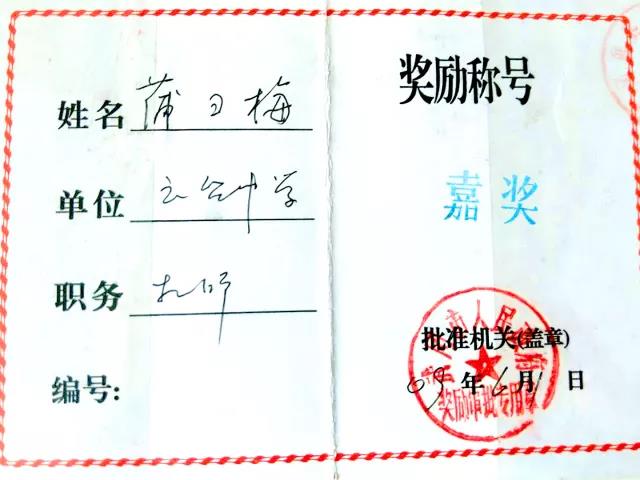 姓名 蒲日梅
单位 云台中学
职务 教师
编号:
奖励称号
嘉奖
批准机关(盖章)
09年 月 日
奖励审批专用章